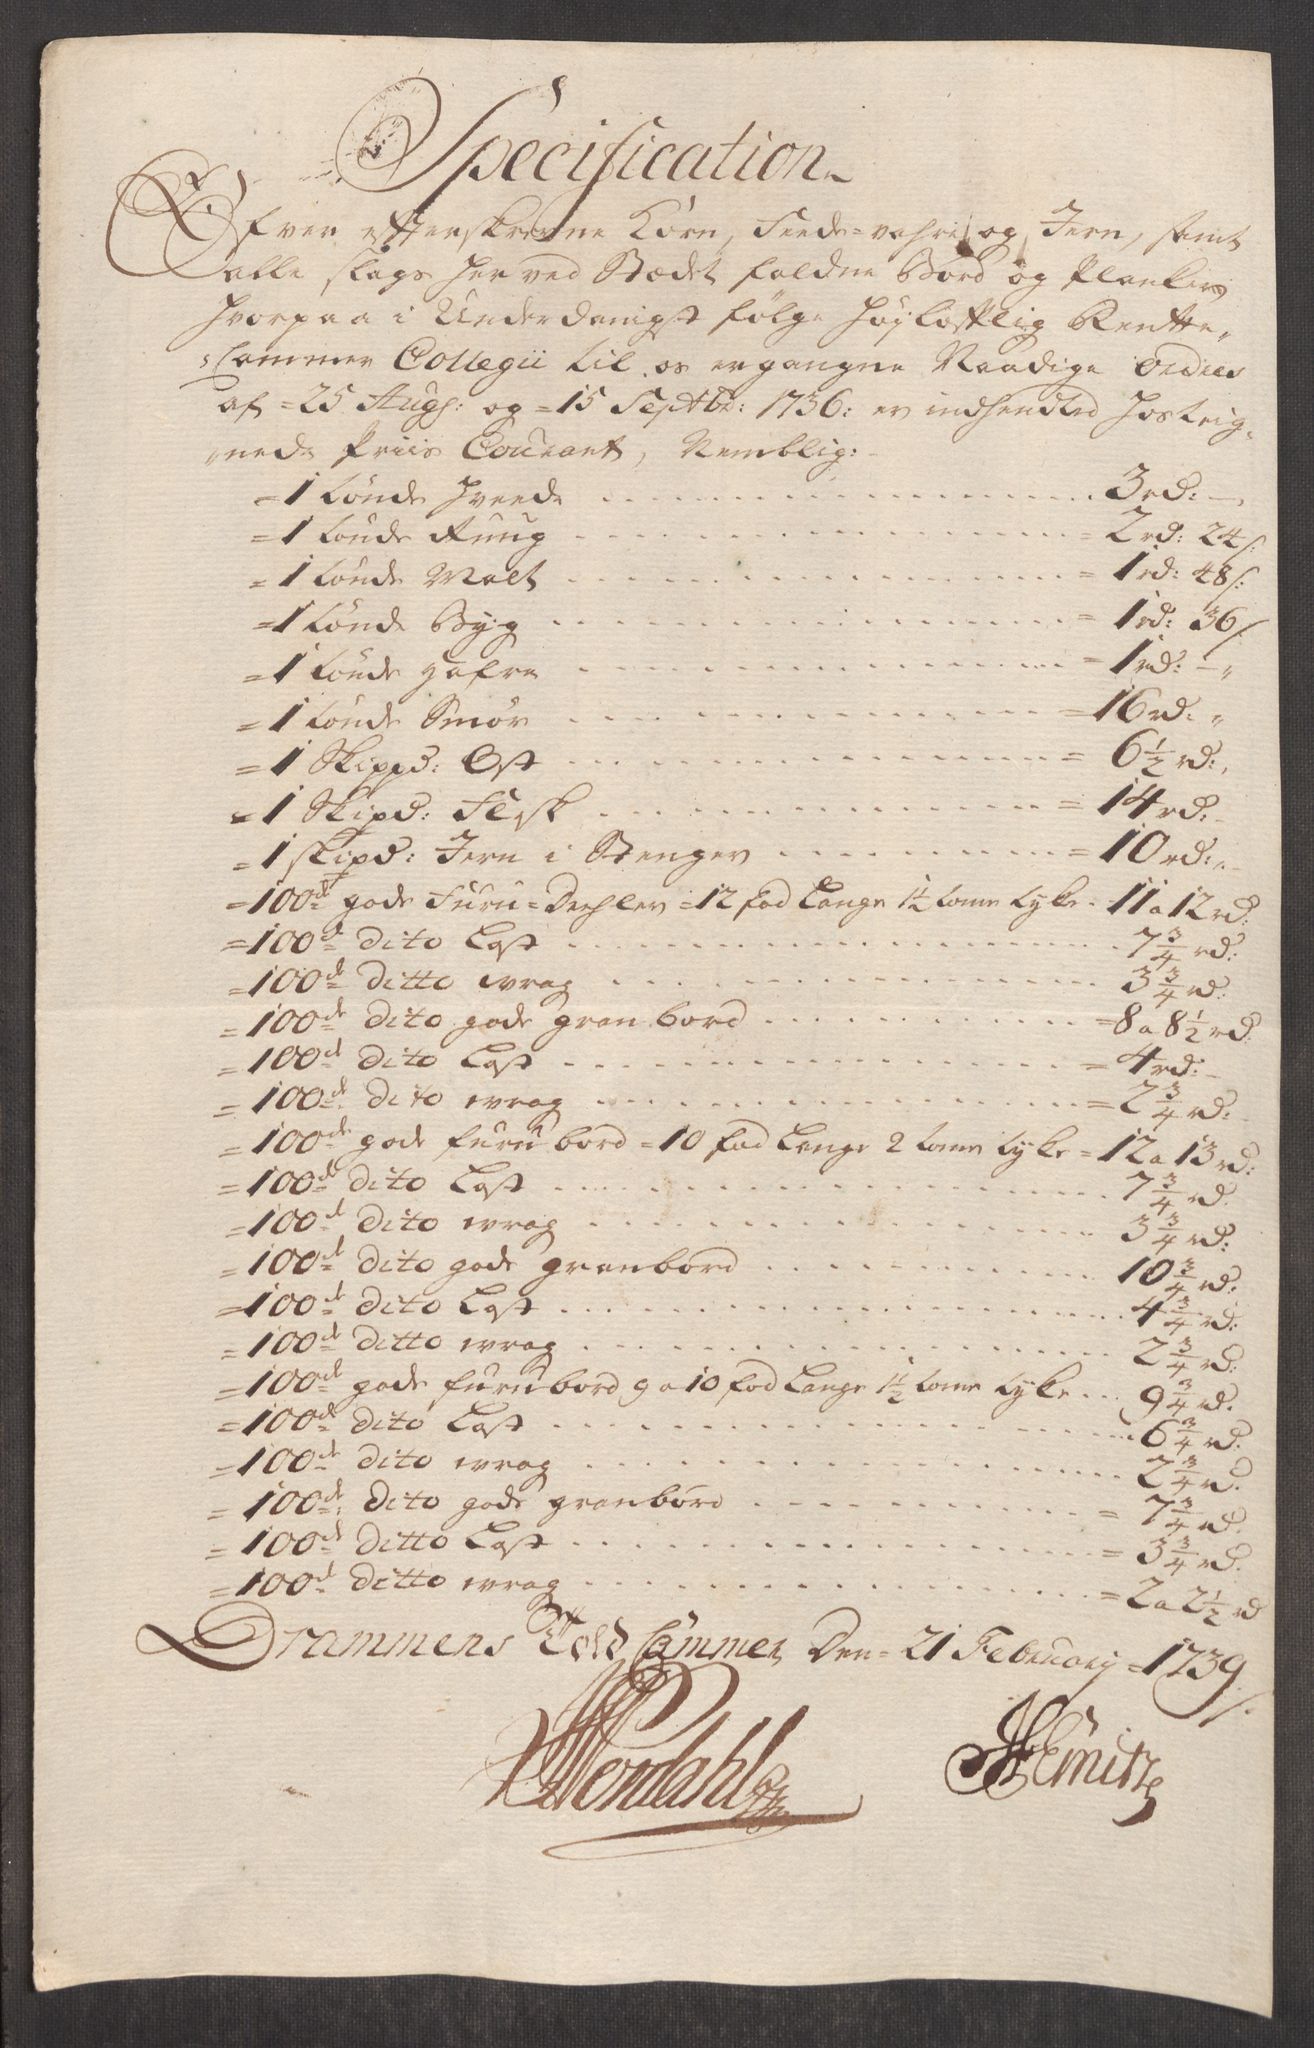 Specification
Ofver efterskrevne Korn, Feede-vahre og Jern, samt
alle slags her ved Stædet faldne Bord og Planker
hvorpaa i Underdanigst følge Høylofflig Rentte-
Cammer Collegii til os ergangne Naadige Ordres
af =25 Augs: og =15 Septbr: 1736: er indhendted hostrig-
nede Priis Courant, Nemblig:
=1 tønde Hvede 3 rd: —
=1 tønde Ruug = 2 rd: 24 s:
=1 tønde Malt = 1 rd: 48 s:
=1 tønde Byg = 1 rd: 36 s:
=1 tønde Hafre = 1 rd: —
=1 tønde Smør = 16 rd:
=1 Skippd: Ost = 6½ rd:
=1 Skipd: Flesk = 14 rd:
=1 skipd: Jern i Stenger = 10 rd:
=100de gode Furu-Deehler =12 fod Lange 1¼ tome tyke 11 a 12 rd:
=100de dito Last 7¾ rd:
=100de ditto wrag 3¾ rd:
=100de dito gode granbord =8 a 8½ rd:
=100de dito Last = 4 rd:
=100de dito wrag = 2¾ rd:
=100de gode furu bord =10 fod Lange 2 tome tyke =12 a 13 rd:
=100de dito Last 7¾ rd.
=100de dito wrag 3¾ rd:
=100de dito gode granbord 10¾ rd:
=100de dito Last 4¾ rd:
=100de ditto wrag 2¾ rd:
=100de gode furubord 9 a 10 fod Lange 1½ tome tyke 9¾ rd.
=100de dito Last 6¾ rd:
=100de dito wrag 2¾ rd.
=100de dito gode granbord = 7¾ rd.
=100de ditto Last = 3¾ rd.
=100de ditto wrag = 2 a 2½ rd
Drammens Told Cammer, Den =21 February =1739